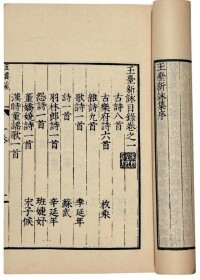 玉臺新詠集序
玉臺新詠目錄卷之一
古詩八首
古樂府詩六首
枚乘
雜詩九首
李延年
詩一首
蘇武
詩一首
辛延年
羽林郎詩一首
班婕妤
怨詩一首
宋子侯
董嬌嬈詩一首
漢時童謠歌一首